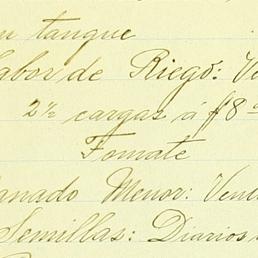 un tanque
Labor de Riego: Ve
2½ cargas á $8
Tomate
Ganado Menor: Vene
Semillas: Diarios